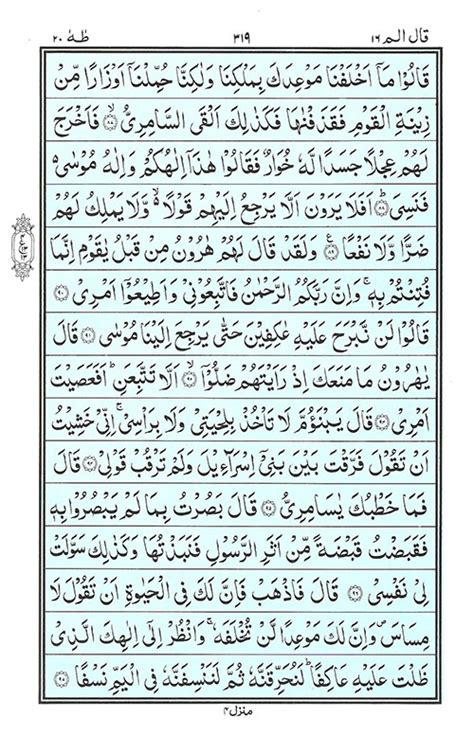 قال الم ١٦ ٣١٩ طٰهٰ ٢٠
قَالُوْا مَاۤ اَخْلَفْنَا مَوْعِدَكَ بِمَلْكِنَا وَلٰكِنَّا حُمِّلْنَاۤ اَوْزَارًا مِّنْ
زِيْنَةِ الْقَوْمِ فَقَذَفْنٰهَا فَكَذٰلِكَ اَلْقَى السَّامِرِىُّ ۙ‏﴿۸۷﴾ فَاَخْرَجَ
لَهُمْ عِجْلًا جَسَدًا لَّهٗ خُوَارٌ فَقَالُوْا هٰذَاۤ اِلٰهُكُمْ وَاِلٰهُ مُوْسٰى ۙ
فَنَسِىَ ؕ‏﴿۸۸﴾ اَفَلَا يَرَوْنَ اَلَّا يَرْجِعُ اِلَيْهِمْ قَوْلًا ۙ وَّلَا يَمْلِكُ لَهُمْ
ضَرًّا وَّلَا نَفْعًا ‏﴿۸۹﴾ وَلَقَدْ قَالَ لَهُمْ هٰرُوْنُ مِنْ قَبْلُ يٰقَوْمِ اِنَّمَا
فُتِنْتُمْ بِهٖ ۚ وَاِنَّ رَبَّكُمُ الرَّحْمٰنُ فَاتَّبِعُوْنِىْ وَاَطِيْعُوْۤا اَمْرِىْ ‏﴿۹۰﴾
قَالُوْا لَنْ نَّبْرَحَ عَلَيْهِ عٰكِفِيْنَ حَتّٰى يَرْجِعَ اِلَيْنَا مُوْسٰى ‏﴿۹۱﴾ قَالَ
يٰهٰرُوْنُ مَا مَنَعَكَ اِذْ رَاَيْتَهُمْ ضَلُّوْۤا ۙ‏﴿۹۲﴾ اَلَّا تَتَّبِعَنِ ؕ اَفَعَصَيْتَ
اَمْرِىْ ‏﴿۹۳﴾ قَالَ يَبْنَؤُمَّ لَا تَاْخُذْ بِلِحْيَتِىْ وَلَا بِرَاْسِىْ ۚ اِنِّىْ خَشِيْتُ
اَنْ تَقُوْلَ فَرَّقْتَ بَيْنَ بَنِىْۤ اِسْرَآءِيْلَ وَلَمْ تَرْقُبْ قَوْلِىْ ‏﴿۹۴﴾ قَالَ
فَمَا خَطْبُكَ يٰسَامِرِىُّ ‏﴿۹۵﴾ قَالَ بَصُرْتُ بِمَا لَمْ يَبْصُرُوْا بِهٖ
فَقَبَضْتُ قَبْضَةً مِّنْ اَثَرِ الرَّسُوْلِ فَنَبَذْتُهَا وَكَذٰلِكَ سَوَّلَتْ
لِىْ نَفْسِىْ ‏﴿۹۶﴾ قَالَ فَاذْهَبْ فَاِنَّ لَكَ فِى الْحَيٰوةِ اَنْ تَقُوْلَ لَا
مِسَاسَ ۪ وَاِنَّ لَكَ مَوْعِدًا لَّنْ تُخْلَفَهٗ ۚ وَانْظُرْ اِلٰٓى اِلٰهِكَ الَّذِىْ
ظَلْتَ عَلَيْهِ عَاكِفًا ؕ لَـنُحَرِّقَنَّهٗ ثُمَّ لَـنَنْسِفَنَّهٗ فِى الْيَمِّ نَسْفًا ‏﴿۹۷﴾
منزل ٤